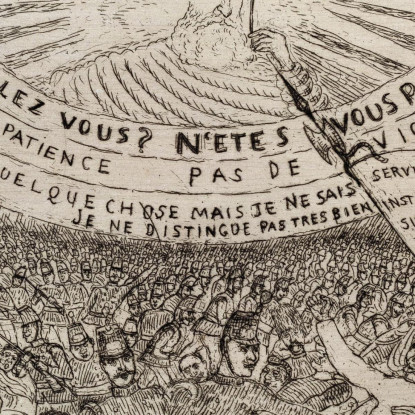 LEZ VOUS? N'ETES VOUS P
PATIENCE PAS DE VI
UELQUE CHOSE MAIS JE NE SAIS
JE NE DISTINGUE PAS TRES BIEN
SERVI
INST
SU